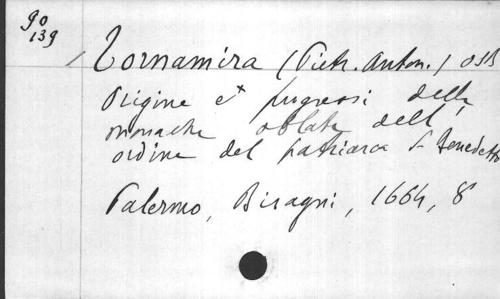 90
139
Tornamira (Pietr. Anton.) OSB
Origine et progressi delle
monache oblate dell'
ordine del patriarca S. Benedetto
Palermo, Bisagni, 1664, 8